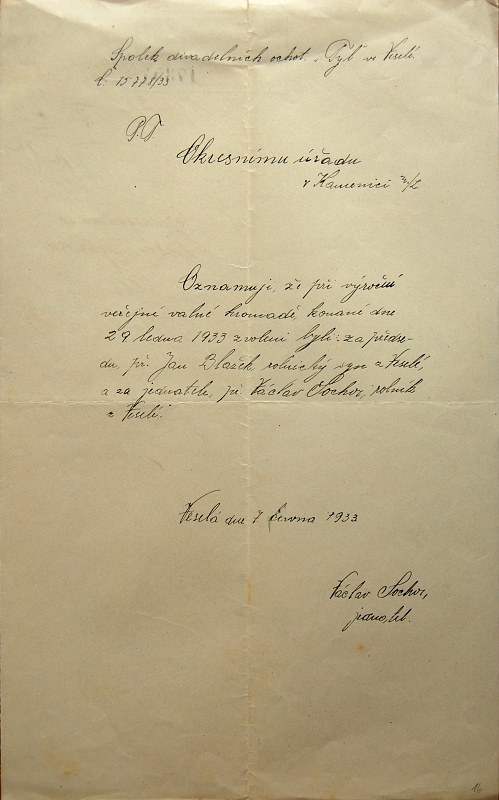 Spolek divadelních ochot. „Tyl" ve Veselé.
č. 15778/33
P.T.
Okresnímu úřadu
v Kamenici n/L
Oznamuji, že při výroční
veřejné valné hromadě, konané dne
29 ledna 1933 zvoleni byli: za předse-
du, př. Jan Blažek rolnický syn z Veselé,
a za jednatele, př. Václav Sochor, rolník
z Veselé.
Veselá dne 7 června 1933
Václav Sochor,
jednatel.
16